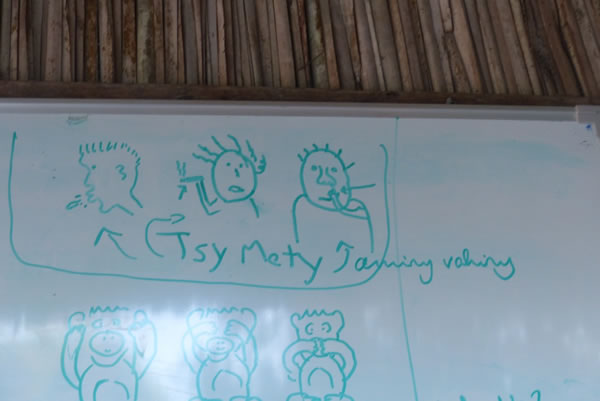 Tsy Mety Taminy vahiny